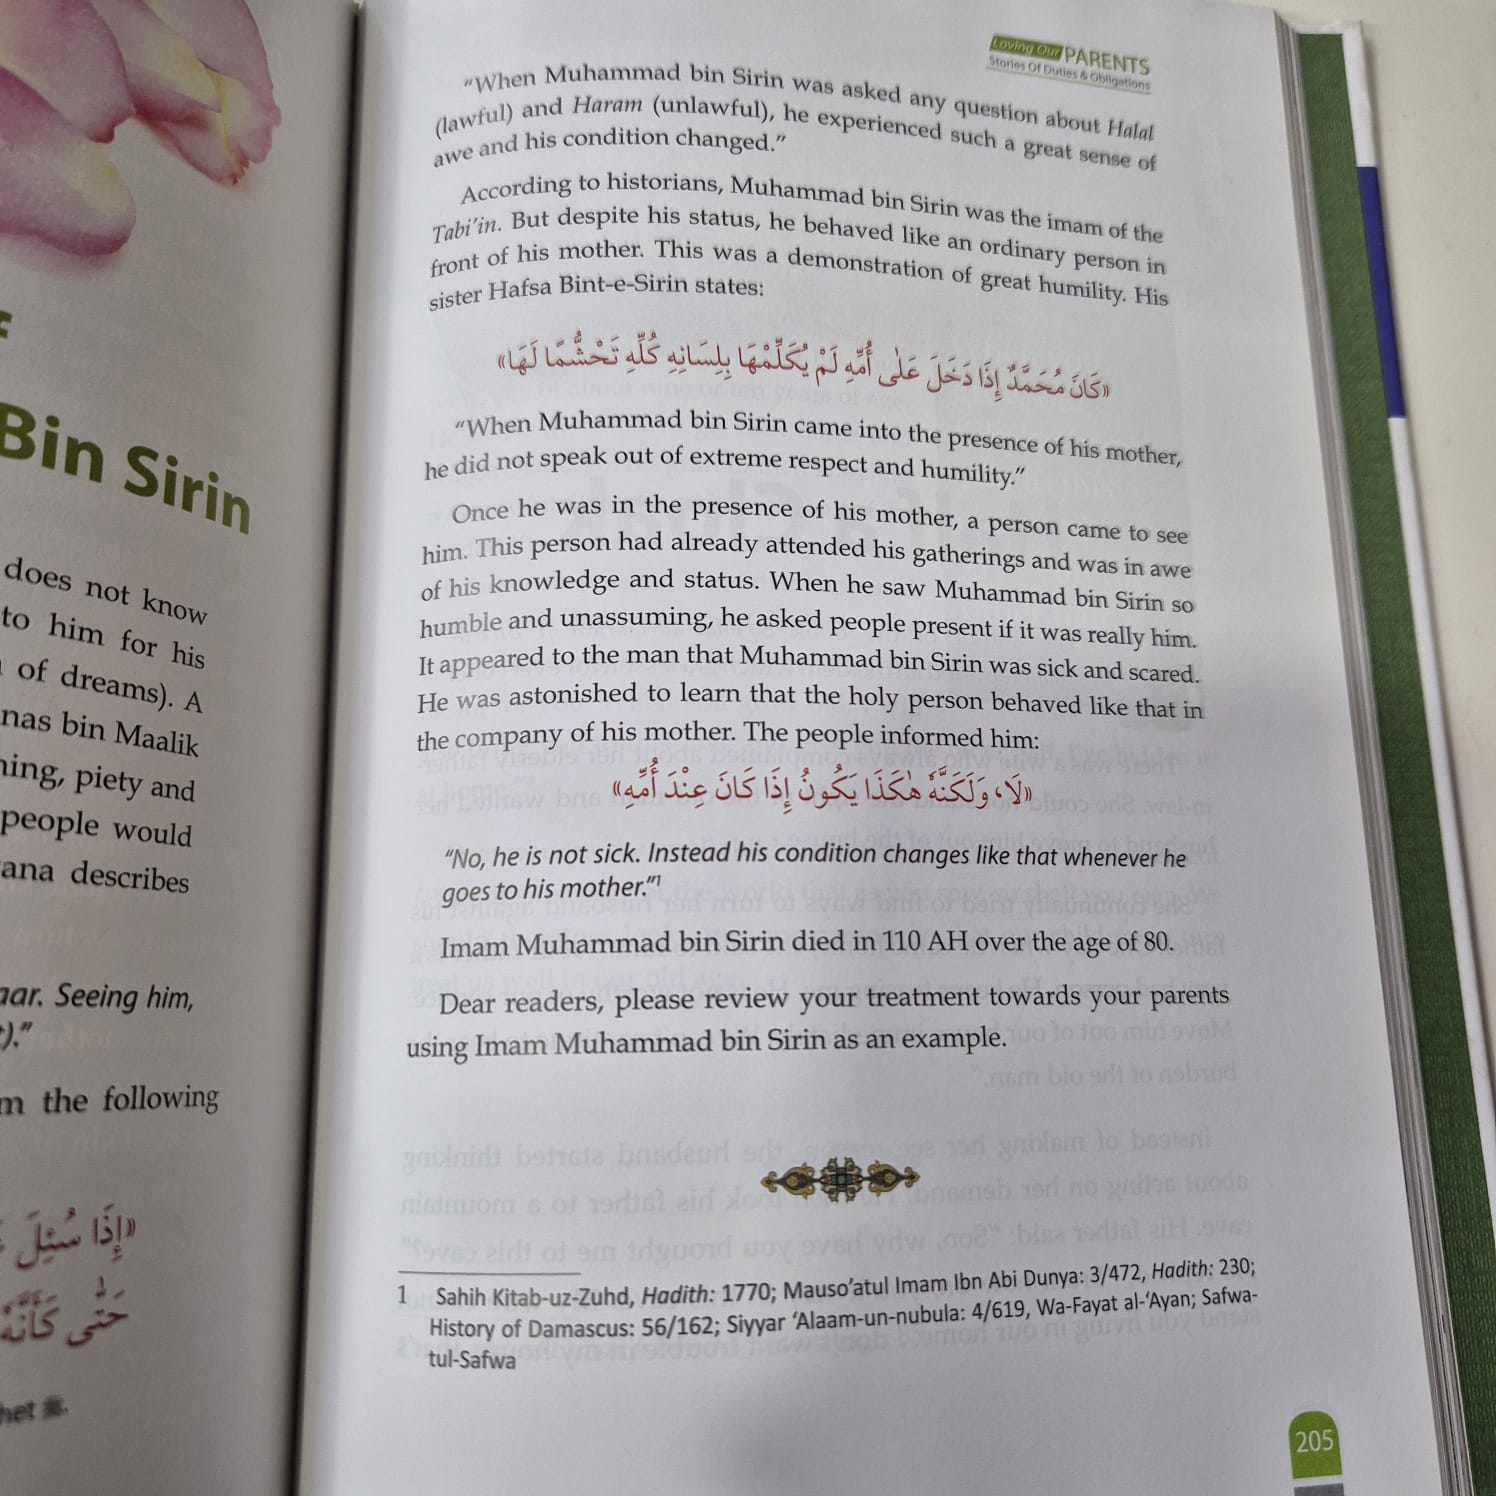 Bin Sirin
does not know
to him for his
of dreams). A
nas bin Maalik
ning, piety and
people would
ana describes
aar. Seeing him,
m the following
«إِذَا سُئِلَ
حَتّٰى كَأَنَّهُ
Loving Our PARENTS
Stories Of Duties & Obligations
"When Muhammad bin Sirin was asked any question about Halal
(lawful) and Haram (unlawful), he experienced such a great sense of
awe and his condition changed."
According to historians, Muhammad bin Sirin was the imam of the
Tabi'in. But despite his status, he behaved like an ordinary person in
front of his mother. This was a demonstration of great humility. His
sister Hafsa Bint-e-Sirin states:
«كَانَ مُحَمَّدٌ إِذَا دَخَلَ عَلٰى أُمِّهِ لَمْ يُكَلِّمْهَا بِلِسَانِهِ كُلِّهِ تَخَشُّمًا لَهَا»
"When Muhammad bin Sirin came into the presence of his mother,
he did not speak out of extreme respect and humility."
Once he was in the presence of his mother, a person came to see
him. This person had already attended his gatherings and was in awe
of his knowledge and status. When he saw Muhammad bin Sirin so
humble and unassuming, he asked people present if it was really him.
It appeared to the man that Muhammad bin Sirin was sick and scared.
He was astonished to learn that the holy person behaved like that in
the company of his mother. The people informed him:
«لَا، وَلَكَنَّهُ هٰكَذَا يَكُونُ إِذَا كَانَ عِنْدَ أُمِّهِ»
"No, he is not sick. Instead his condition changes like that whenever he
goes to his mother."1
Imam Muhammad bin Sirin died in 110 AH over the age of 80.
Dear readers, please review your treatment towards your parents
using Imam Muhammad bin Sirin as an example.
1 Sahih Kitab-uz-Zuhd, Hadith: 1770; Mauso'atul Imam Ibn Abi Dunya: 3/472, Hadith: 230;
History of Damascus: 56/162; Siyyar 'Alaam-un-nubula: 4/619, Wa-Fayat al-'Ayan; Safwa-
tul-Safwa
205